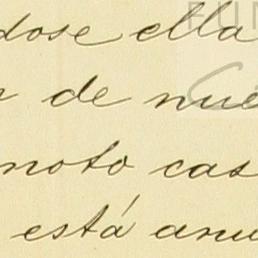 dose ella
de nue
noto cas
está anu